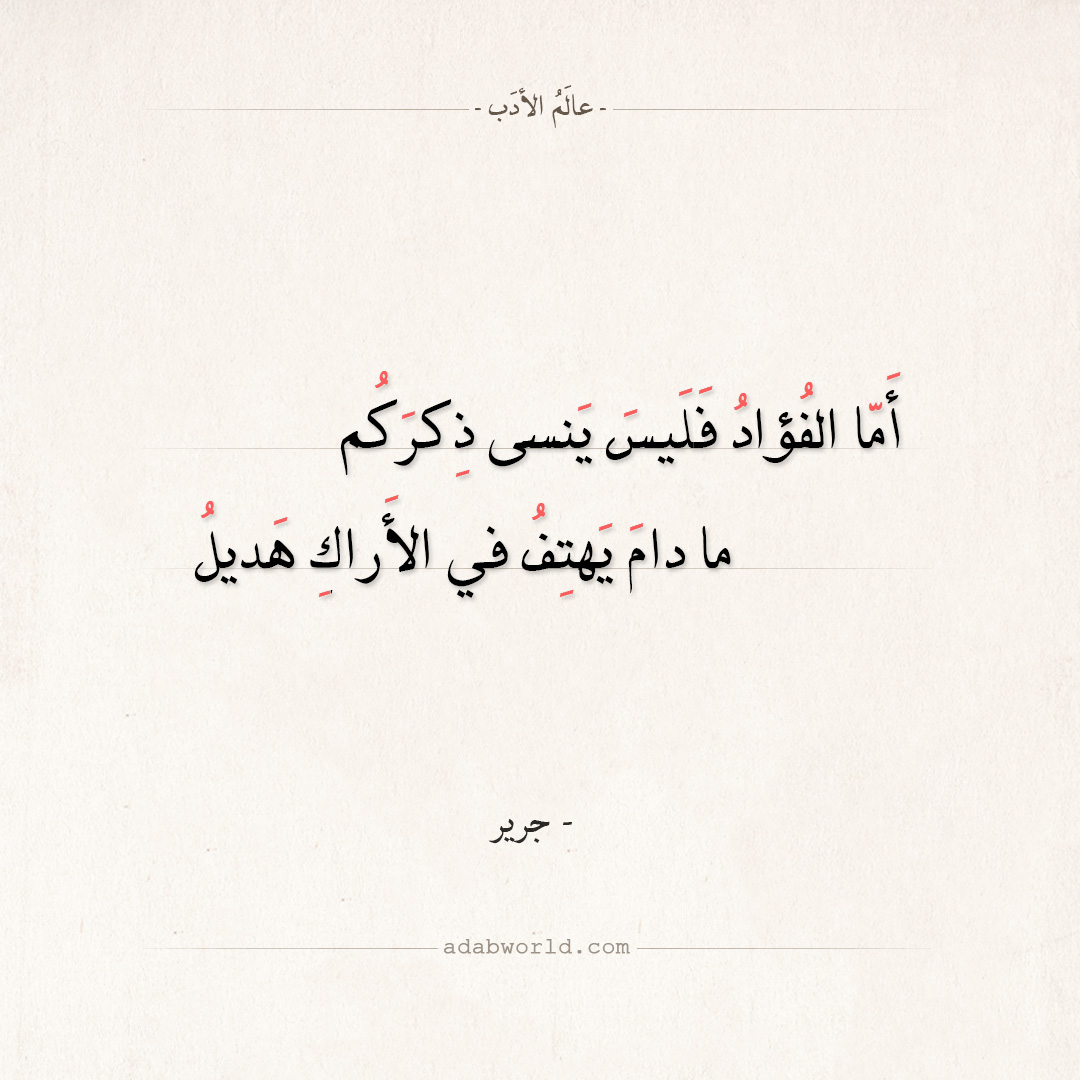 - عالَمُ الأدَب -
أَمّا الفُؤادُ فَلَيسَ يَنسى ذِكرَكُم
ما دامَ يَهتِفُ في الأَراكِ هَديلُ
- جرير
adabworld.com